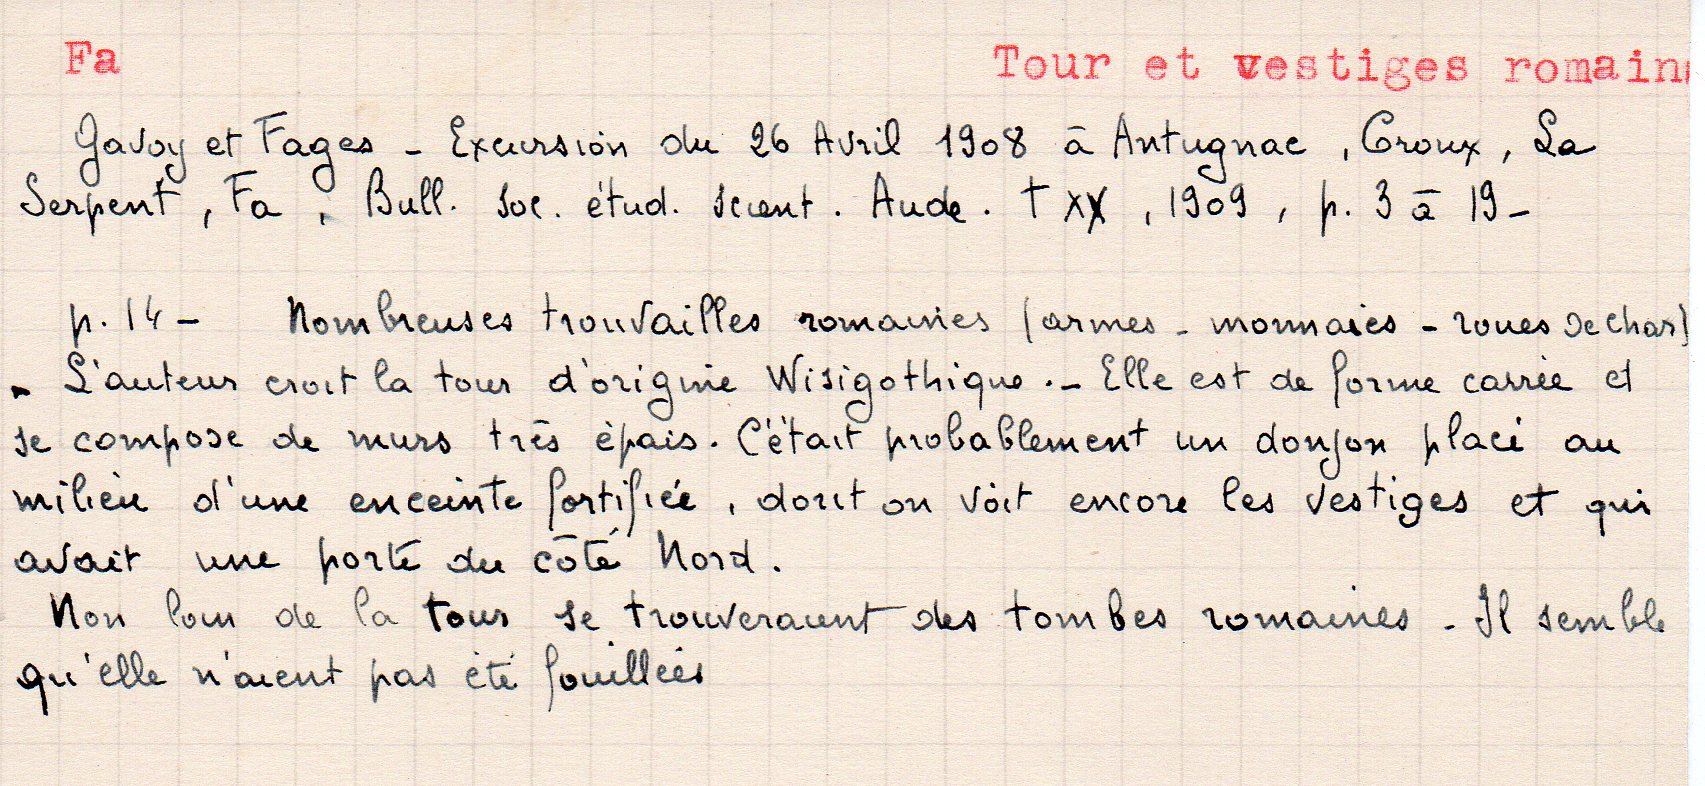 Fa Tour et vestiges romains
Gavoy et Fages - Excursion du 26 Avril 1908 à Antugnac, Croux, La
Serpent, Fa, Bull. Soc. étud. scient. Aude. t XX, 1909, p. 3 à 19-
p. 14 - Nombreuses trouvailles romaines (armes - monnaies - roues de char)
- L'auteur croit la tour d'origine Wisigothique. - Elle est de forme carrée et
se compose de murs très épais. C'était probablement un donjon placé au
milieu d'une enceinte fortifiée, dont on voit encore les vestiges et qui
avait une porte du côté Nord.
Non loin de la tour se trouveraient des tombes romaines - Il semble
qu'elle n'aient pas été fouillées